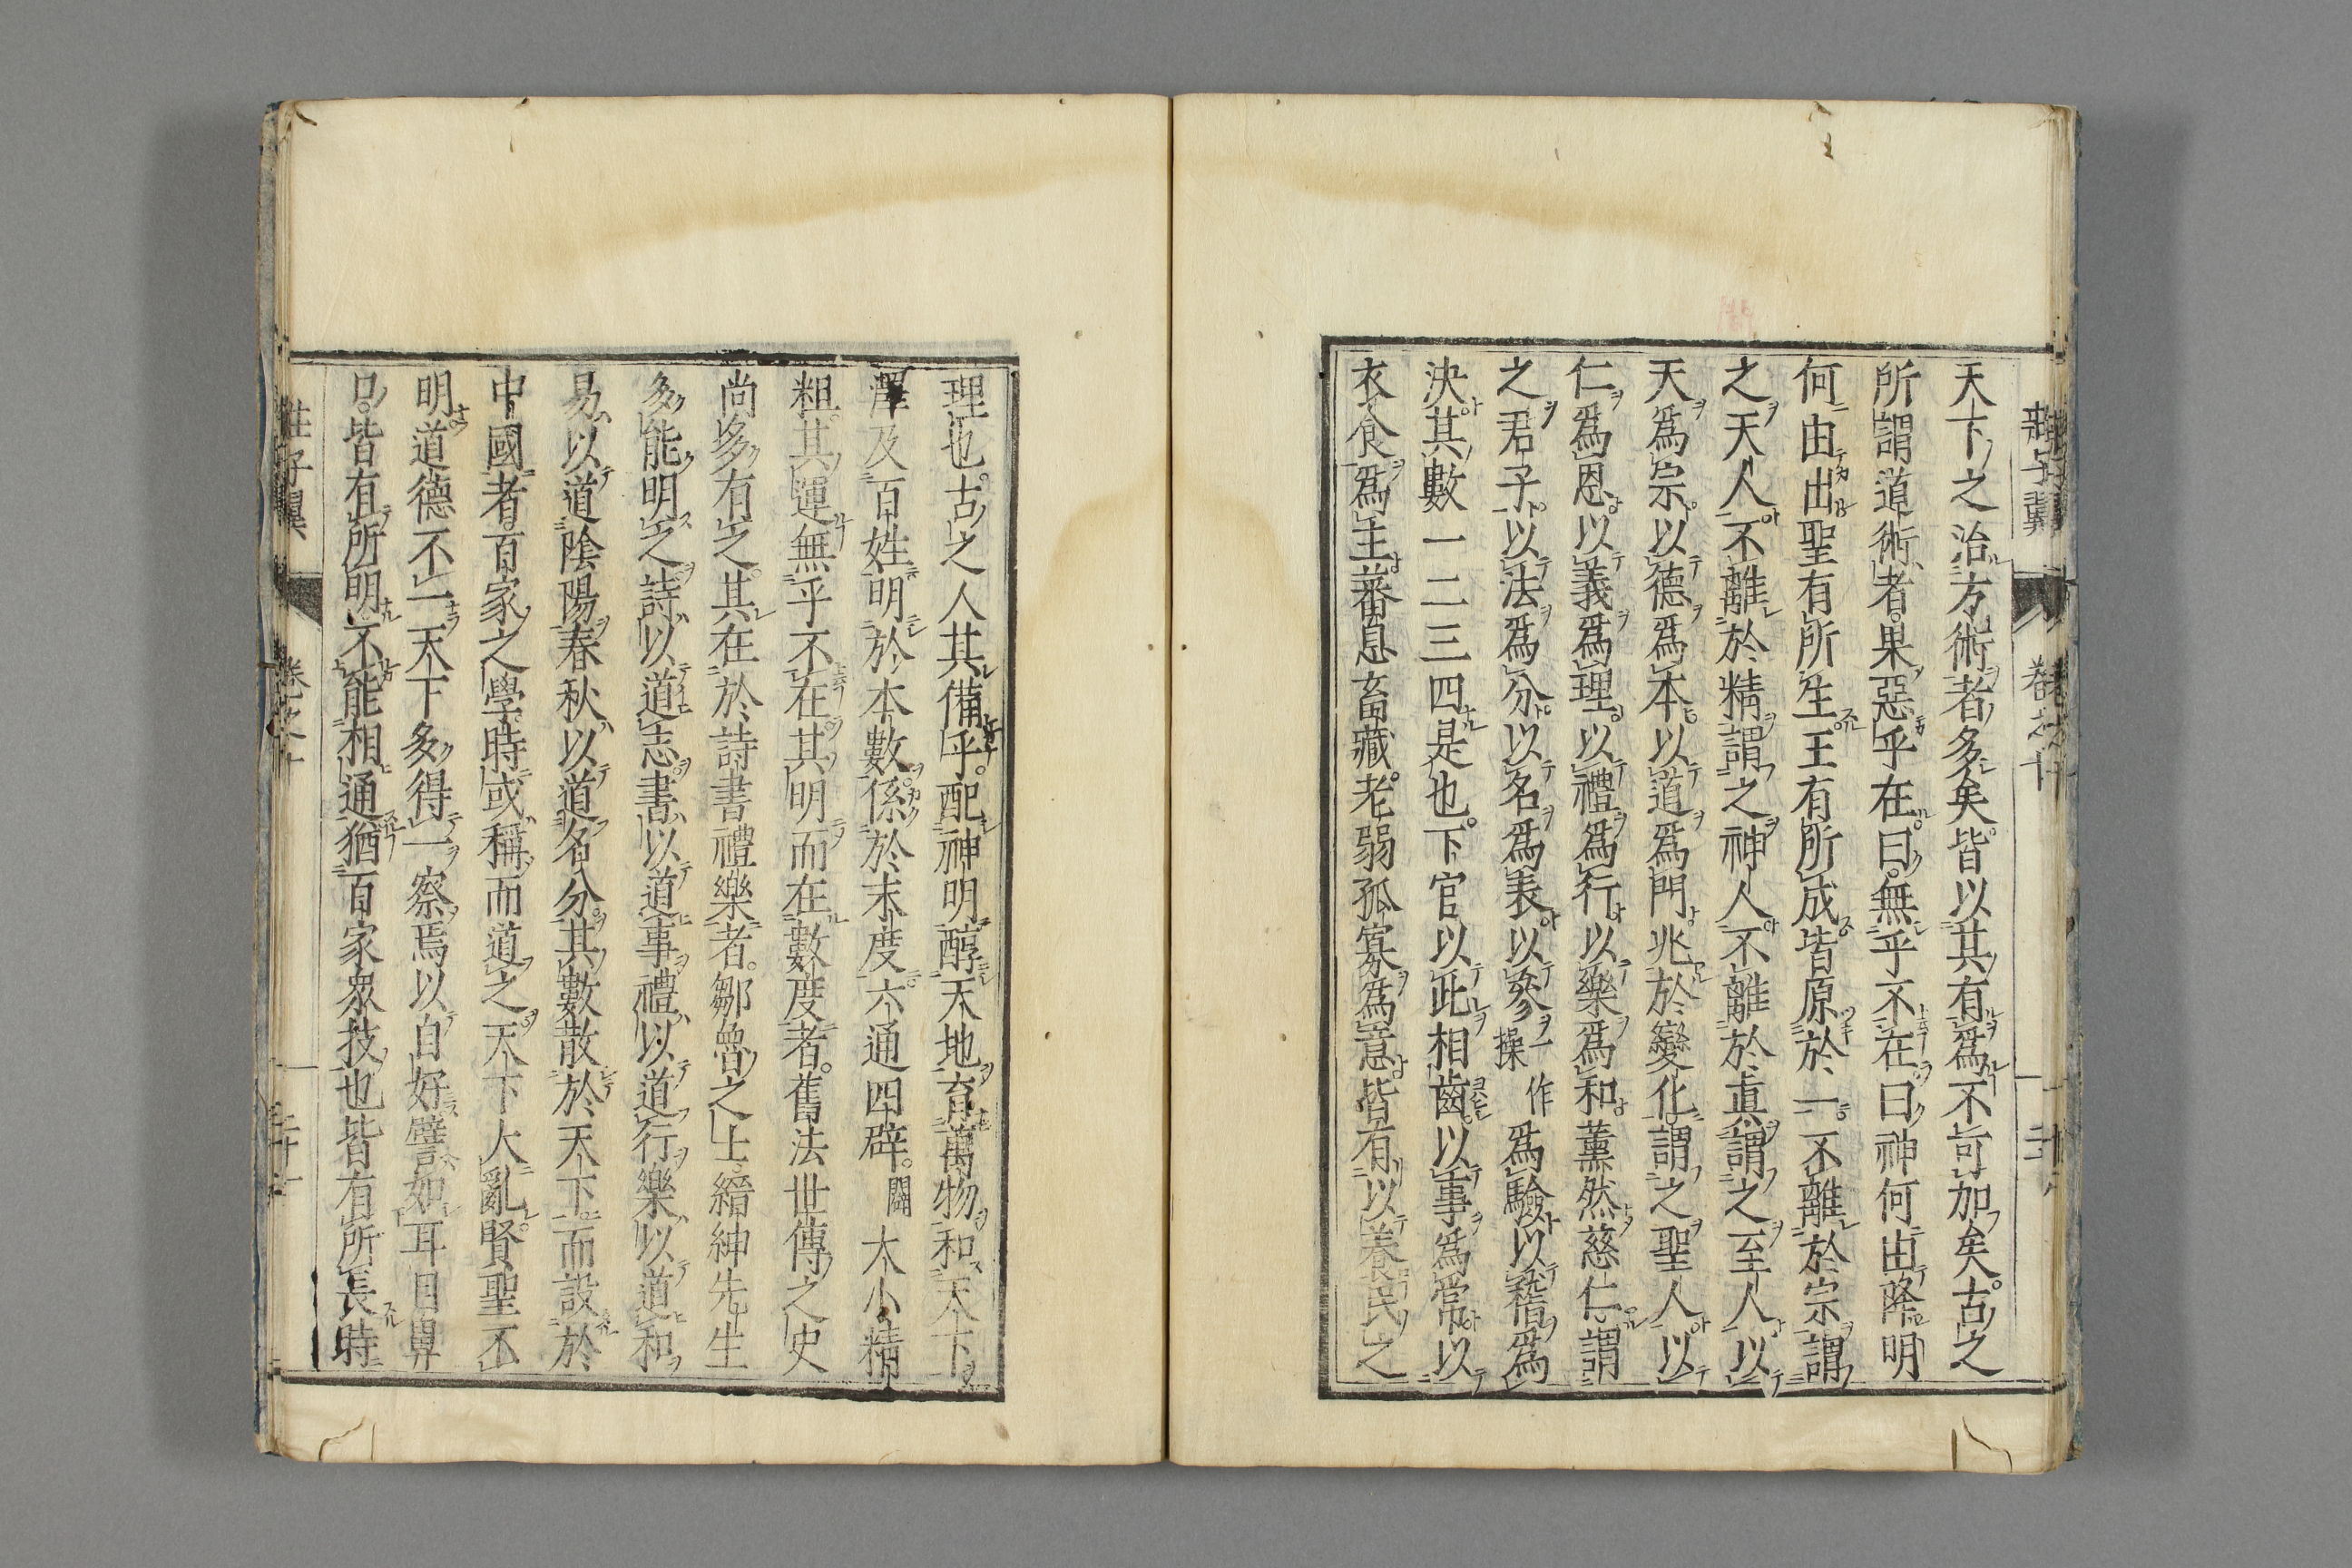 天下之治方術者多矣皆以其有爲不可加矣古之
所謂道術者果惡乎在曰無乎不在曰神何由降明
何由出聖有所生王有所成皆原於一不離於宗謂
之天人不離於精謂之神人不離於眞謂之至人以
天爲宗以德爲本以道爲門兆於變化謂之聖人以
仁爲恩以義爲理以禮爲行以樂爲和薰然慈仁謂
之君子以法爲分以名爲表以參作操爲驗以稽爲
決其數一二三四是也下官以此相齒以事爲常以
衣食爲主蕃息畜藏老弱孤寡爲意皆有以養民之
理也古之人其備乎配神明醇天地育萬物和天下
澤及百姓明於本數係於末度六通四辟闢大小精
粗其運無乎不在其明而在數度者舊法世傳之史
尚多有之其在於詩書禮樂者鄒魯之士縉紳先生
多能明之詩以道志書以道事禮以道行樂以道和
易以道陰陽春秋以道名分其數散於天下而設於
中國者百家之學時或稱而道之天下大亂賢聖不
明道德不一天下多得一察焉以自好譬如耳目鼻
口皆有所明不能相通猶百家衆技也皆有所長時
莊子翼 卷之十